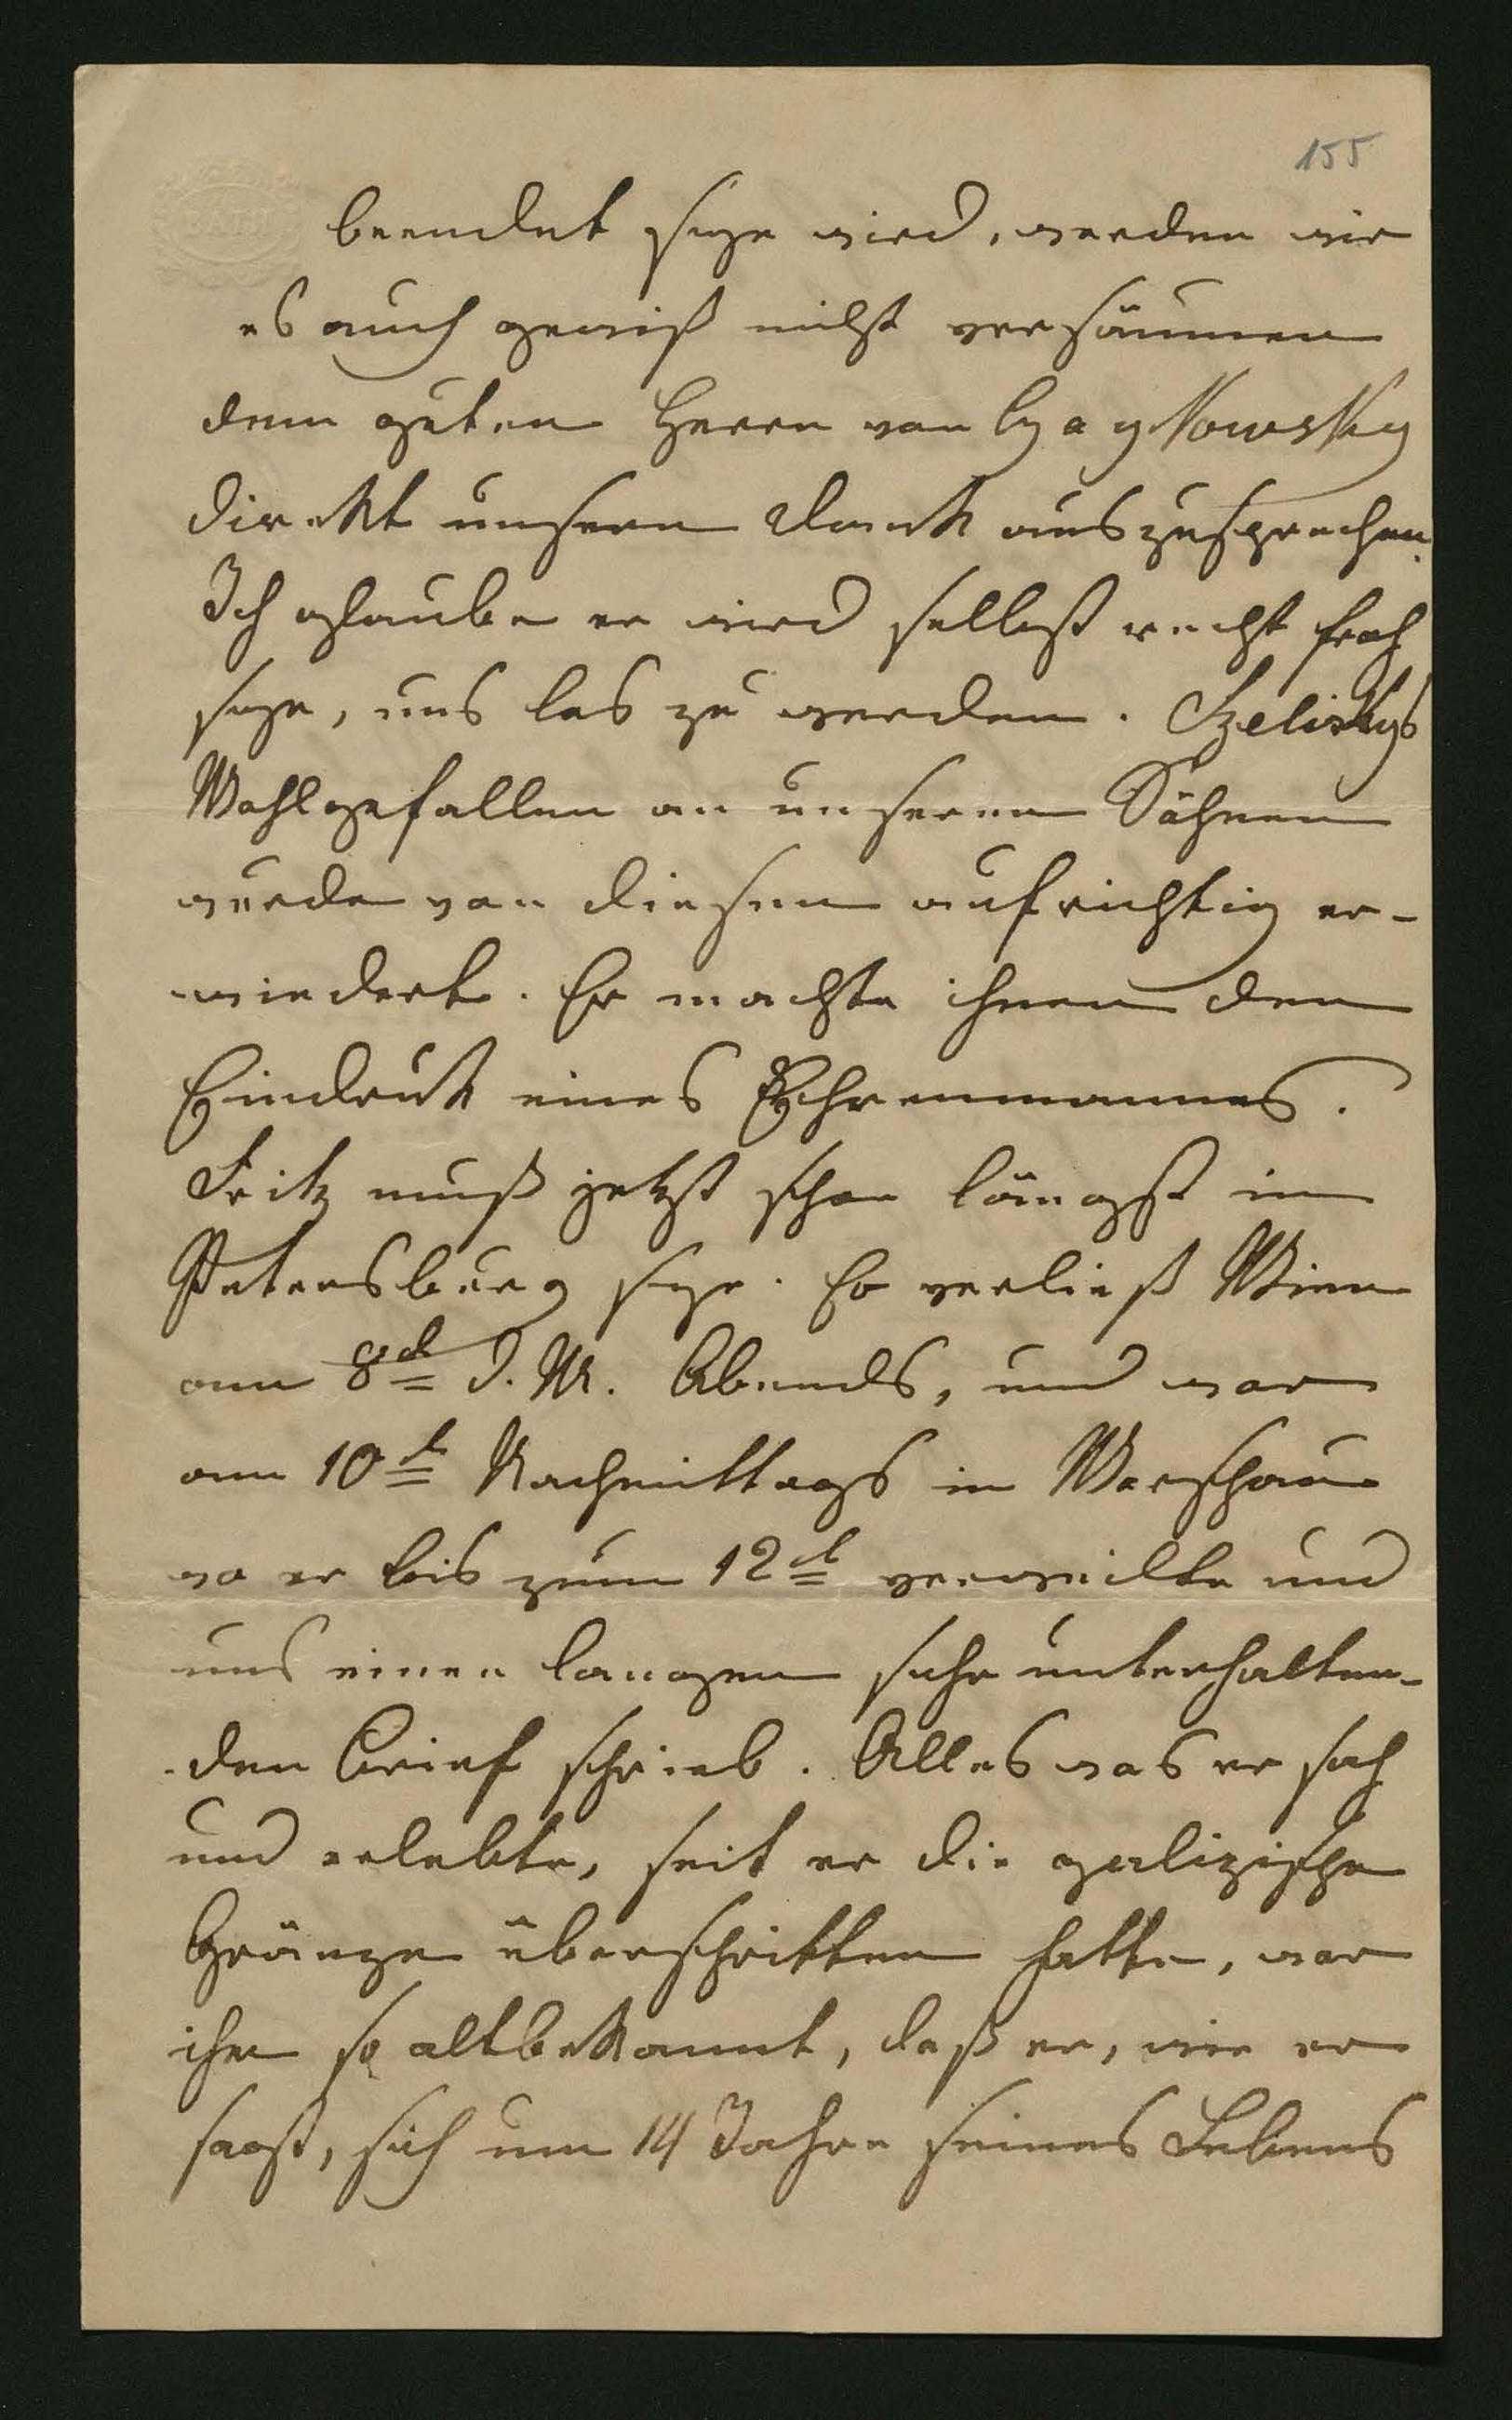 155
BATH
beendet seyn wird, werden wir
es auch gewiß nicht versäumen
dem guten Herrn von
direkt unsern Dank auszusprechen.
Ich glaube er wird selbst recht froh
seyn, uns los zu werden. Szeliskys
Wohlgefallen an unseren Söhnen
wurde von diesen aufrichtig er-
wiedert. Er machte ihnen den
Eindruck eines Ehrenmannes.
Fritz muß jetzt schon längst in
Petersburg seyn. Er verließ Wien
am 8t d. M. Abends, und war
am 10t Nachmittags in Warschau
wo er bis zum 12t verweilte und
uns einen langen sehr unterhalten-
den Brief schrieb. Alles was er sah
und erlebte, seit er die galizische
Gränze überschritten hatte, war
ihm so altbekannt, daß er, wie er
sagt, sich um 14 Jahre seines Lebens